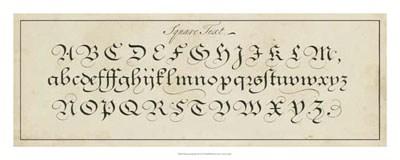 Square Text.
A B C D E F G H I J K L M,
abcdefffghijklmnopqrsſtuvwxyz
N O P Q R S T U V W X Y Z.